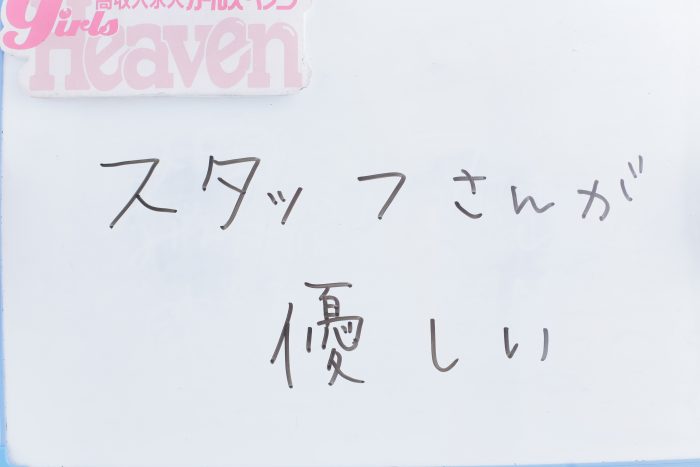 高収入求人ガールズヘブン
girls
Heaven
スタッフさんが
優しい